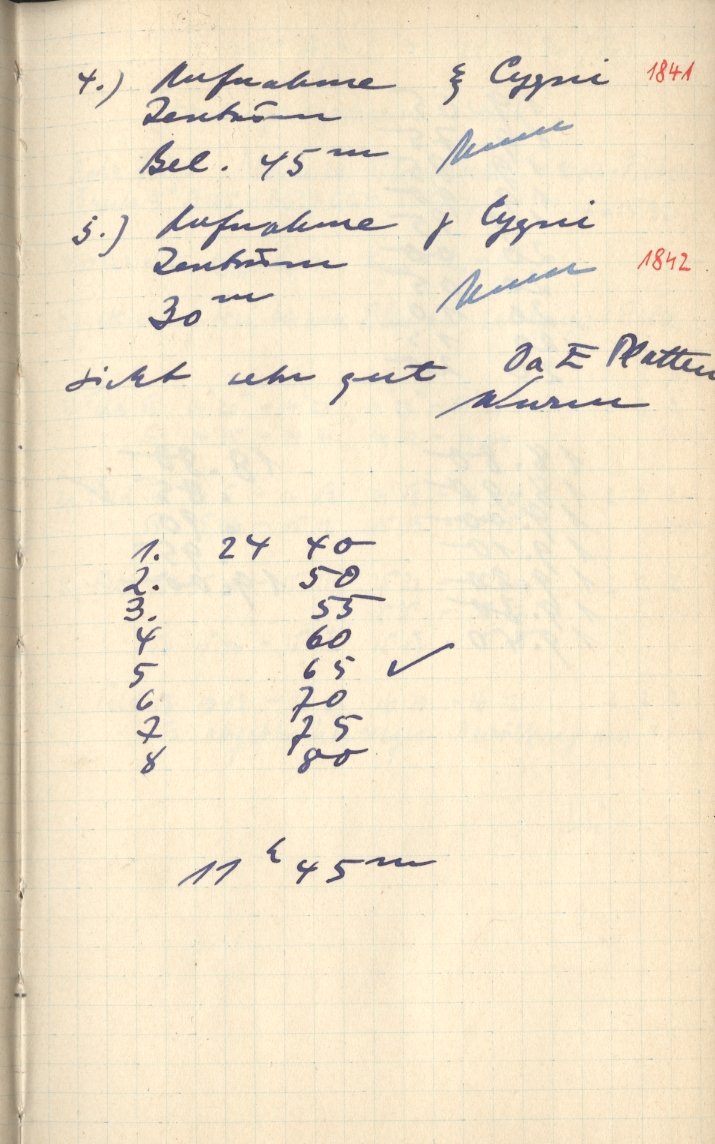 4.) Aufnahme ξ Cygni 1841
Zentrum
Bel. 45 m Wurm
5.) Aufnahme γ Cygni
Zentrum Wurm 1842
30 m
sehr gut Da E Platten
Wurm
1. 24 40
2. 50
3. 55
4 60
5 65 ✓
6 70
7 75
8 80
11 h 45 m